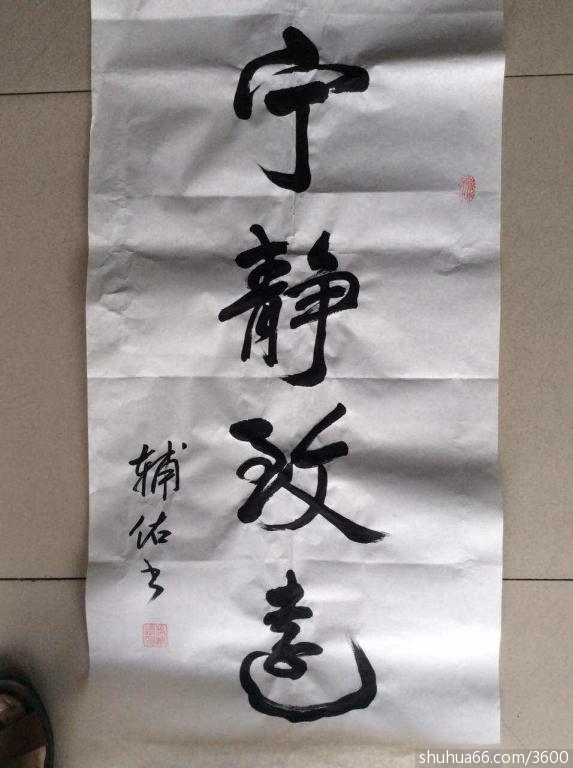 宁静致远
辅佑书
shuhua66.com/3600